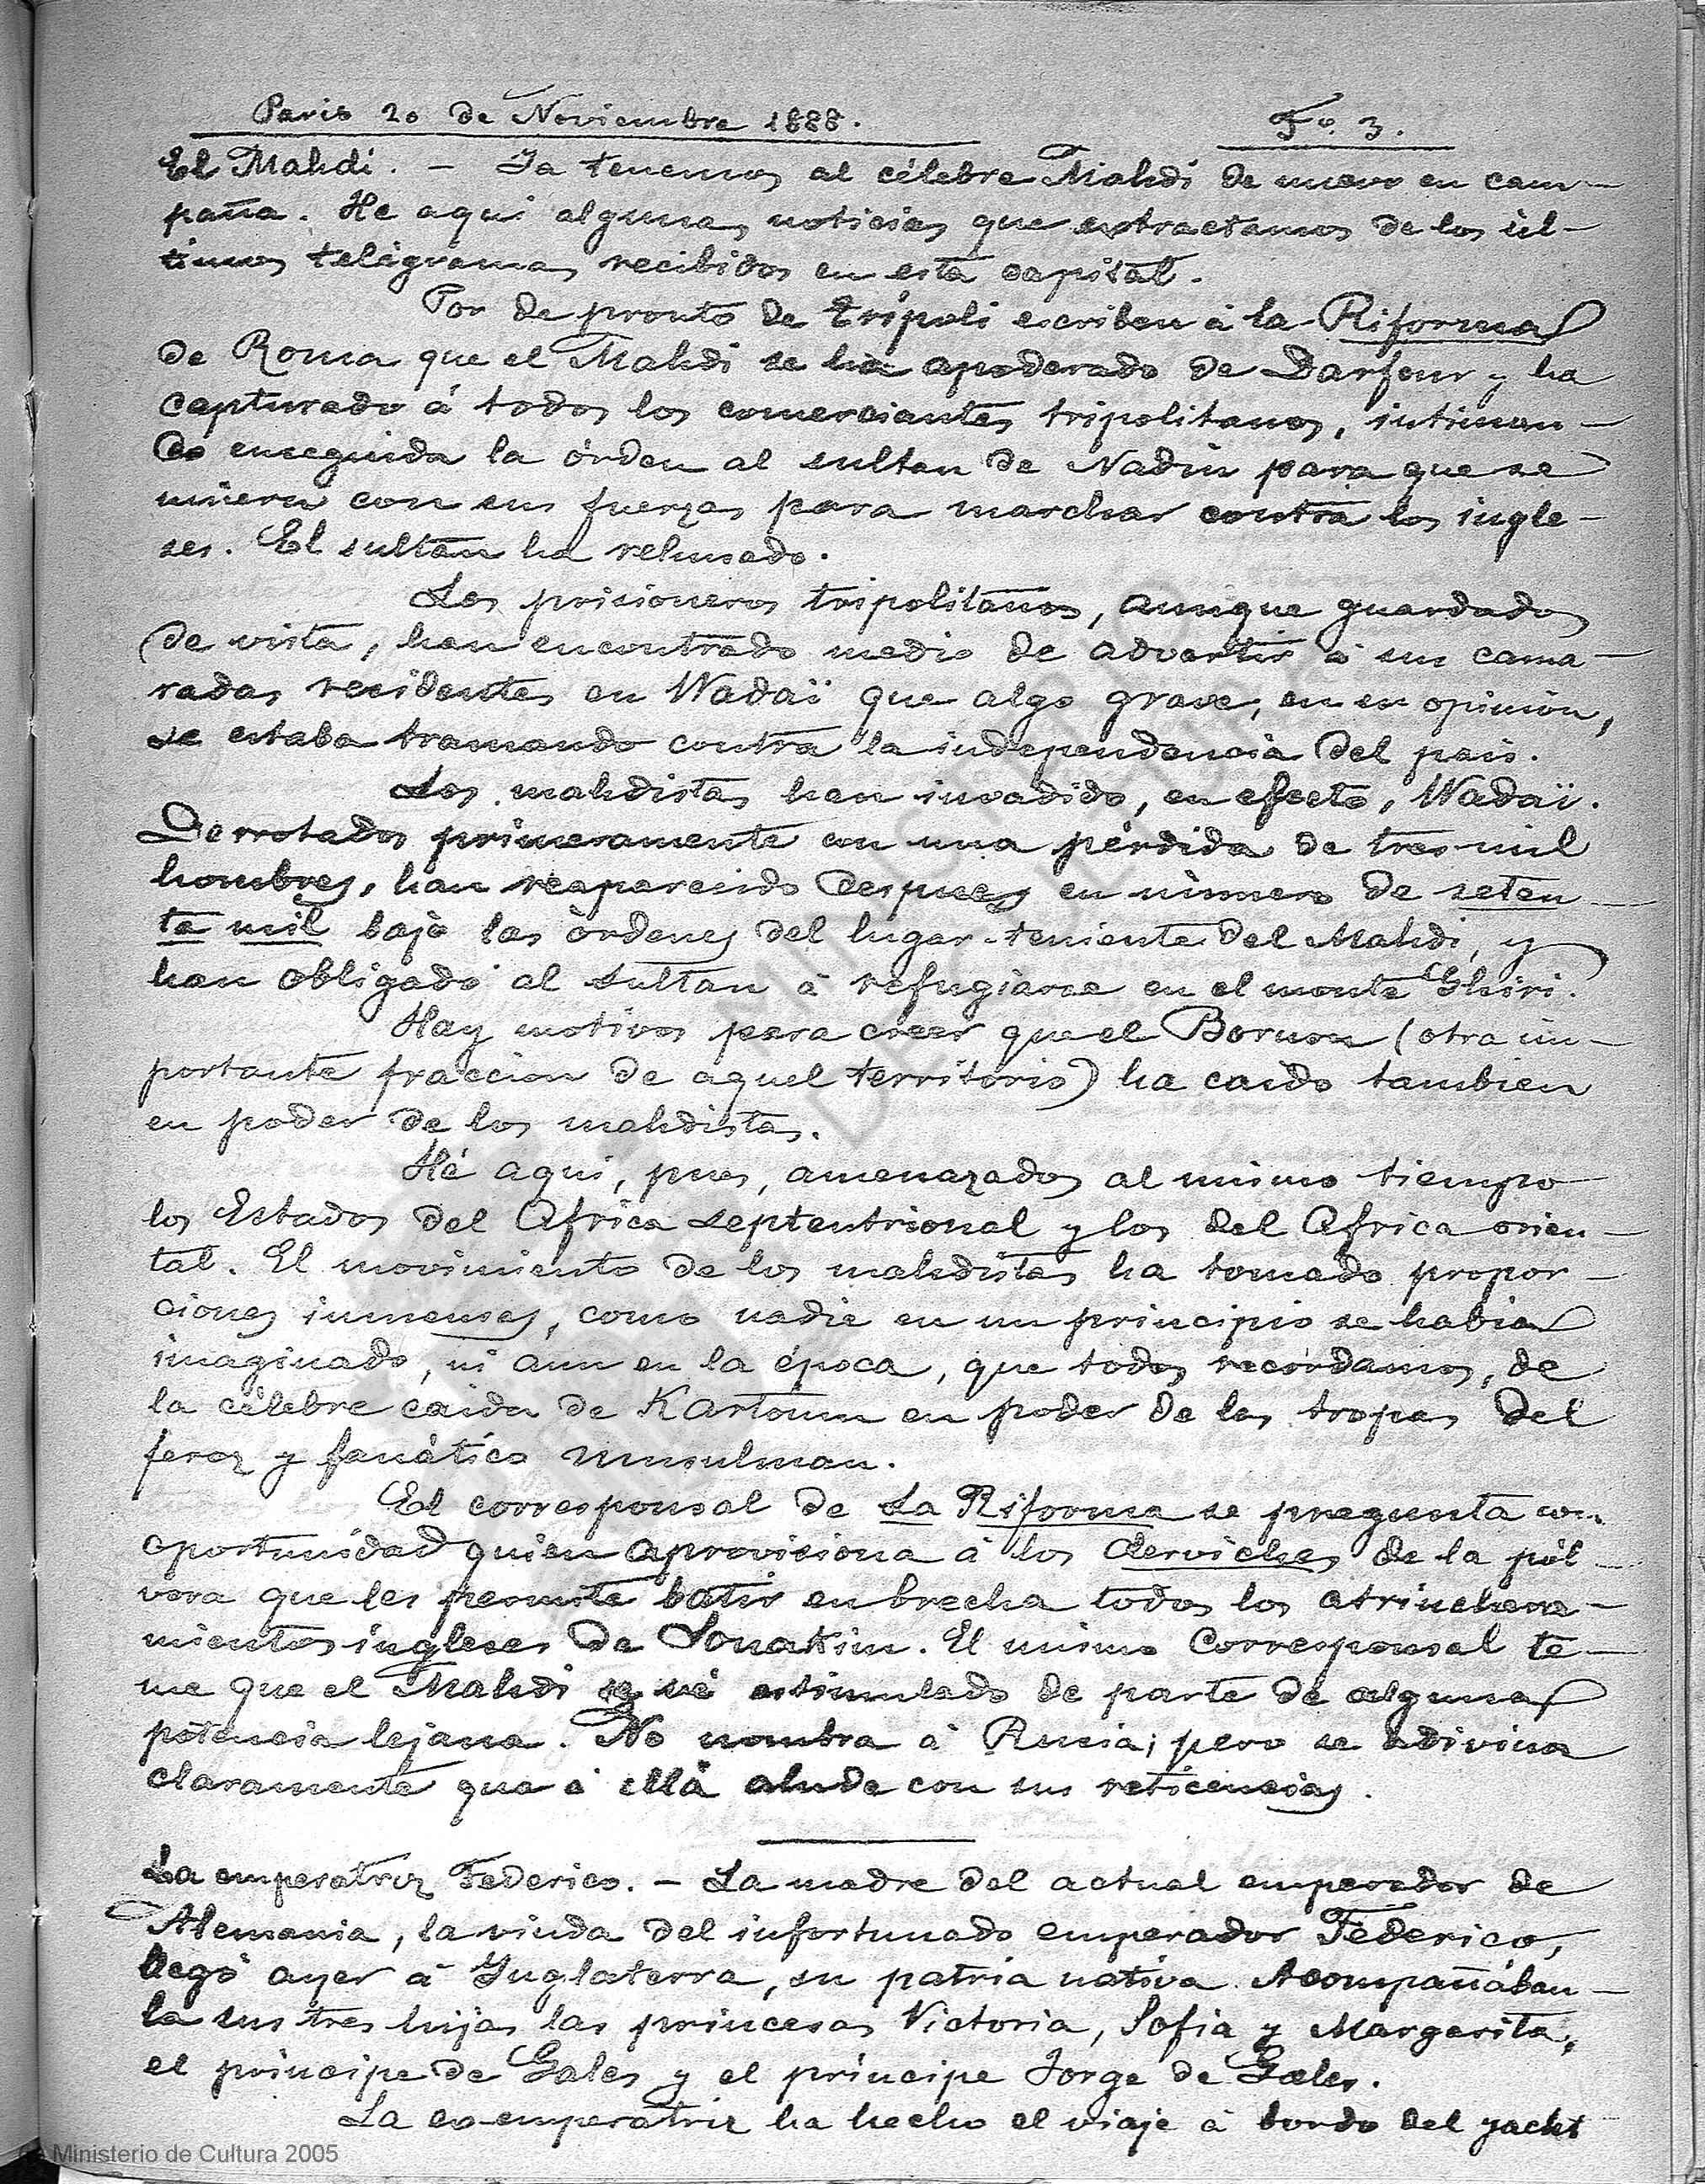 Paris 20 de Noviembre 1888. Fº. 3.
El Mahdi. — Ya tenemos al célebre Mahdi de nuevo en cam-
paña. He aqui algunas noticias que extractamos de los úl-
timos telégramas recibidos en esta capital.
Por de pronto de Tripoli escriben á la Riforma
de Roma que el Mahdi se ha apoderado de Darfour y ha
capturado á todos los comerciantes tripolitanos, intiman-
do enseguida la órden al sultan de Nadin para que se
uniera con sus fuerzas para marchar contra los ingle-
ses. El sultan ha rehusado.
Los prisioneros tripolitanos, aunque guardados
de vista, han encontrado medio de advertir á sus cama-
radas residentes en Wadaï que algo grave, en su opinion,
se estaba tramando contra la independencia del pais.
Los mahdistas han invadido, en efecto, Wadaï.
Derrotados primeramente con una pérdida de tres mil
hombres, han reaparecido despues en número de seten
ta mil bajo las órdenes del lugar-teniente del Mahdi, y
han obligado al sultan á refugiarse en el monte Ghiri.
Hay motivos para creer que el Bornou (otra im-
portante fraccion de aquel territorio) ha caido tambien
en poder de los mahdistas.
Hé aqui, pues, amenazados al mismo tiempo
los Estados del Africa septentrional y los del Africa orien-
tal. El movimiento de los mahdistas ha tomado propor-
ciones inmensas, como nadie en un principio se habia
imaginado, ni aun en la época, que todos recordamos, de
la célebre caida de Kartoum en poder de las tropas del
feroz y fanático musulman.
El corresponsal de La Riforma se pregunta con
oportunidad quien aprovisiona á los derviches de la pól-
vora que les permite batir en brecha todos los atrinchera-
mientos ingleses de Souakim. El mismo Corresponsal te-
me que el Mahdi se vé estimulado de parte de alguna
potencia lejana. No nombra á Rusia; pero se adivina
claramente que á ella alude con sus reticencias.
La emperatriz Federico. — La madre del actual emperador de
Alemania, la viuda del infortunado emperador Federico,
llegó ayer á Inglaterra, su patria nativa. Acompañában-
la sus tres hijas las princesas Victoria, Sofia y Margarita,
el principe de Gales y el principe Jorge de Gales.
La ex-emperatriz ha hecho el viaje á bordo del yacht
© Ministerio de Cultura 2005